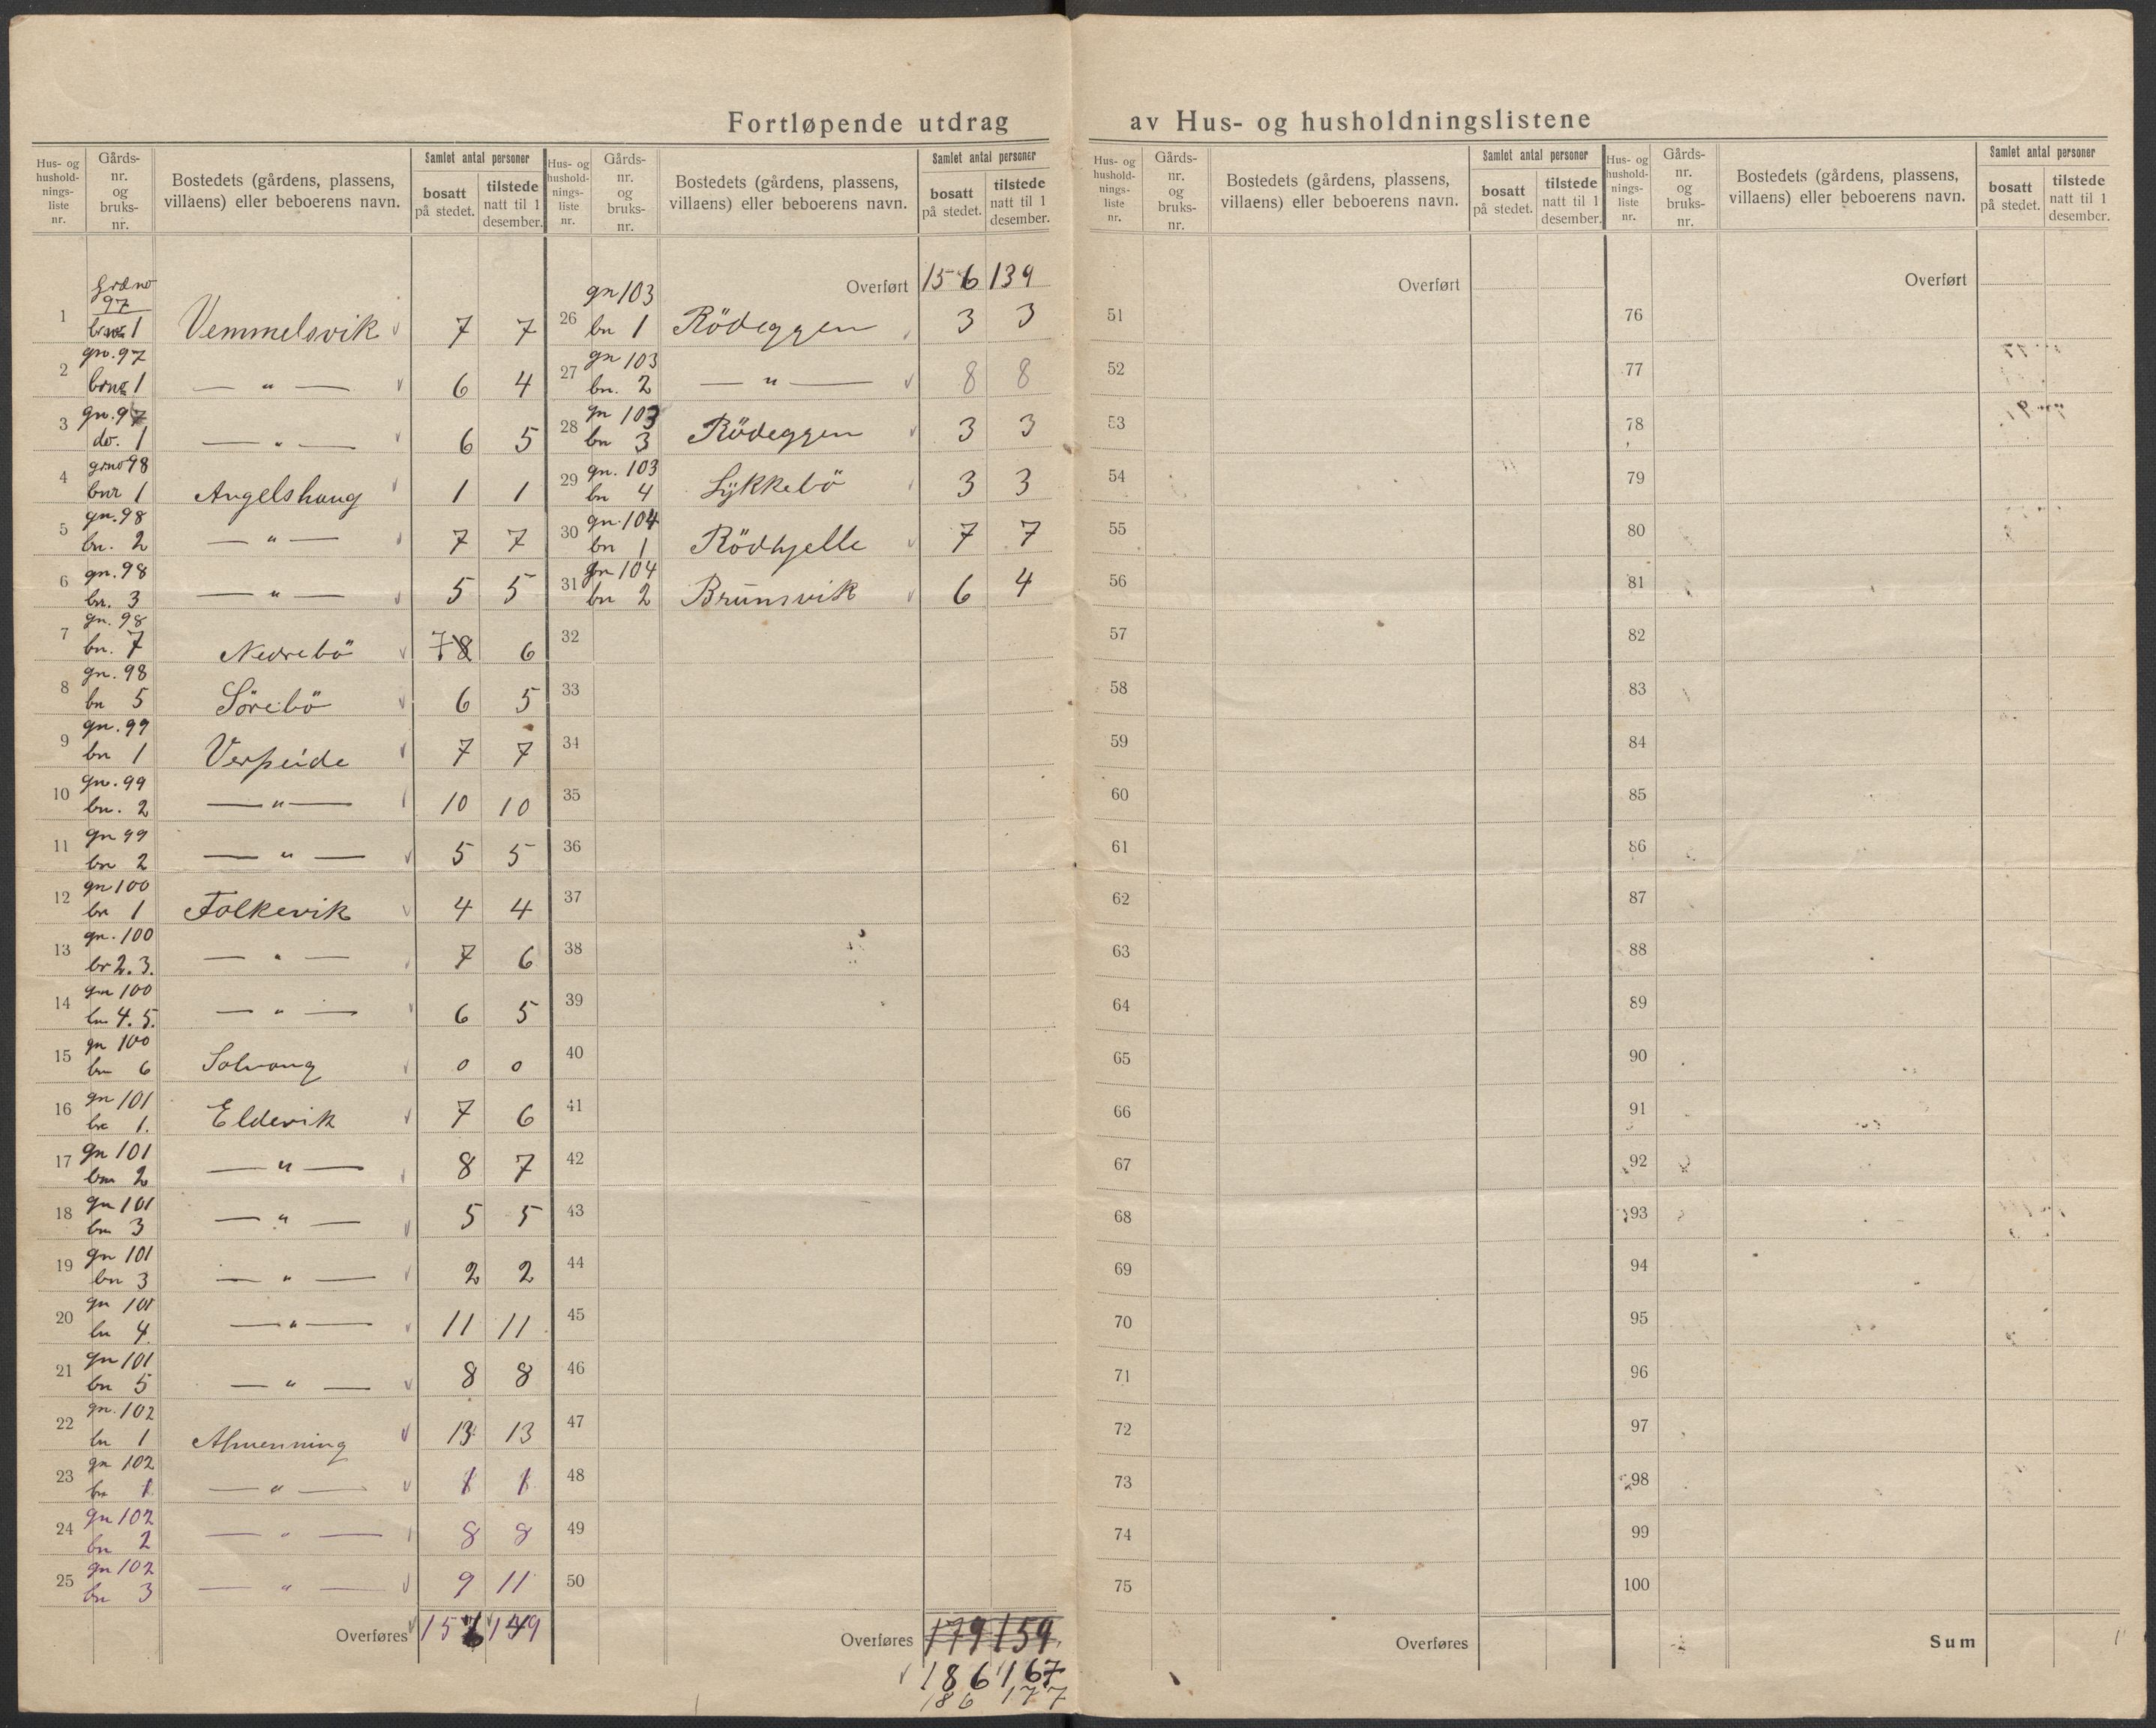 Fortløpende utdrag av Hus- og husholdningslistene
Hus- og hushold-nings-liste nr. Gårds-nr. og bruks-nr. Bostedets (gårdens, plassens, villaens) eller beboerens navn. Samlet antal personer bosatt på stedet. tilstede natt til 1 desember.
Grdno 97
1 brno 1 Vemmelsvik 7 7
gn. 97
2 brno 1 — " — 6 4
gn. 97
3 do. 1 — " — 6 5
grno 98
4 bnr 1 Angelshaug 1 1
gn. 98
5 bn. 2 — " — 7 7
gn. 98
6 bn. 3 — " — 5 5
gn. 98
7 bn. 7 Nedrebö 7 8 6
gn. 98
8 bn 5 Sörebö 6 5
gn. 99
9 bn 1 Verpeide 7 7
gn. 99
10 bn. 2 — " — 10 10
gn 99
11 bn 2 — " — 5 5
gn 100
12 bn 1 Folkevik 4 4
gn. 100
13 br 2. 3. — " — 7 6
gn 100
14 bn 4. 5. — " — 6 5
gn 100
15 bn 6 Solvang 0 0
gn 101
16 bn 1. Eldevik 7 6
gn 101
17 bn 2 — " — 8 7
gn 101
18 bn 3 — " — 5 5
gn 101
19 bn 3 — " — 2 2
gn 101
20 bn 4 — " — 11 11
gn 101
21 bn 5 — " — 8 8
gn. 102
22 bn 1 Almenning 13 13
gn 102
23 bn 1 — " — 1 1
gn 102
24 bn 2 — " — 8 8
gn 102
25 bn 3 — " — 9 11
Overføres 156 149
Hus- og hushold-nings-liste nr. Gårds-nr. og bruks-nr. Bostedets (gårdens, plassens, villaens) eller beboerens navn. Samlet antal personer bosatt på stedet. tilstede natt til 1 desember.
Overført 156 139
gn 103
26 bn 1 Rödeggen 3 3
gn 103
27 bn. 2 — " — 8 8
gn 103
28 bn 3 Rödeggen 3 3
gn. 103
29 bn 4 Lykkebö 3 3
gn. 104
30 bn 1 Rödhjelle 7 7
gn 104
31 bn 2 Brunsvik 6 4
32
33
34
35
36
37
38
39
40
41
42
43
44
45
46
47
48
49
50
Overføres 179 159
186 167
186 177
Hus- og hushold-nings-liste nr. Gårds-nr. og bruks-nr. Bostedets (gårdens, plassens, villaens) eller beboerens navn. Samlet antal personer bosatt på stedet. tilstede natt til 1 desember.
Overført
51
52
53
54
55
56
57
58
59
60
61
62
63
64
65
66
67
68
69
70
71
72
73
74
75
Overføres
Hus- og hushold-nings-liste nr. Gårds-nr. og bruks-nr. Bostedets (gårdens, plassens, villaens) eller beboerens navn. Samlet antal personer bosatt på stedet. tilstede natt til 1 desember.
Overført
76
77
78
79
80
81
82
83
84
85
86
87
88
89
90
91
92
93
94
95
96
97
98
99
100
Sum